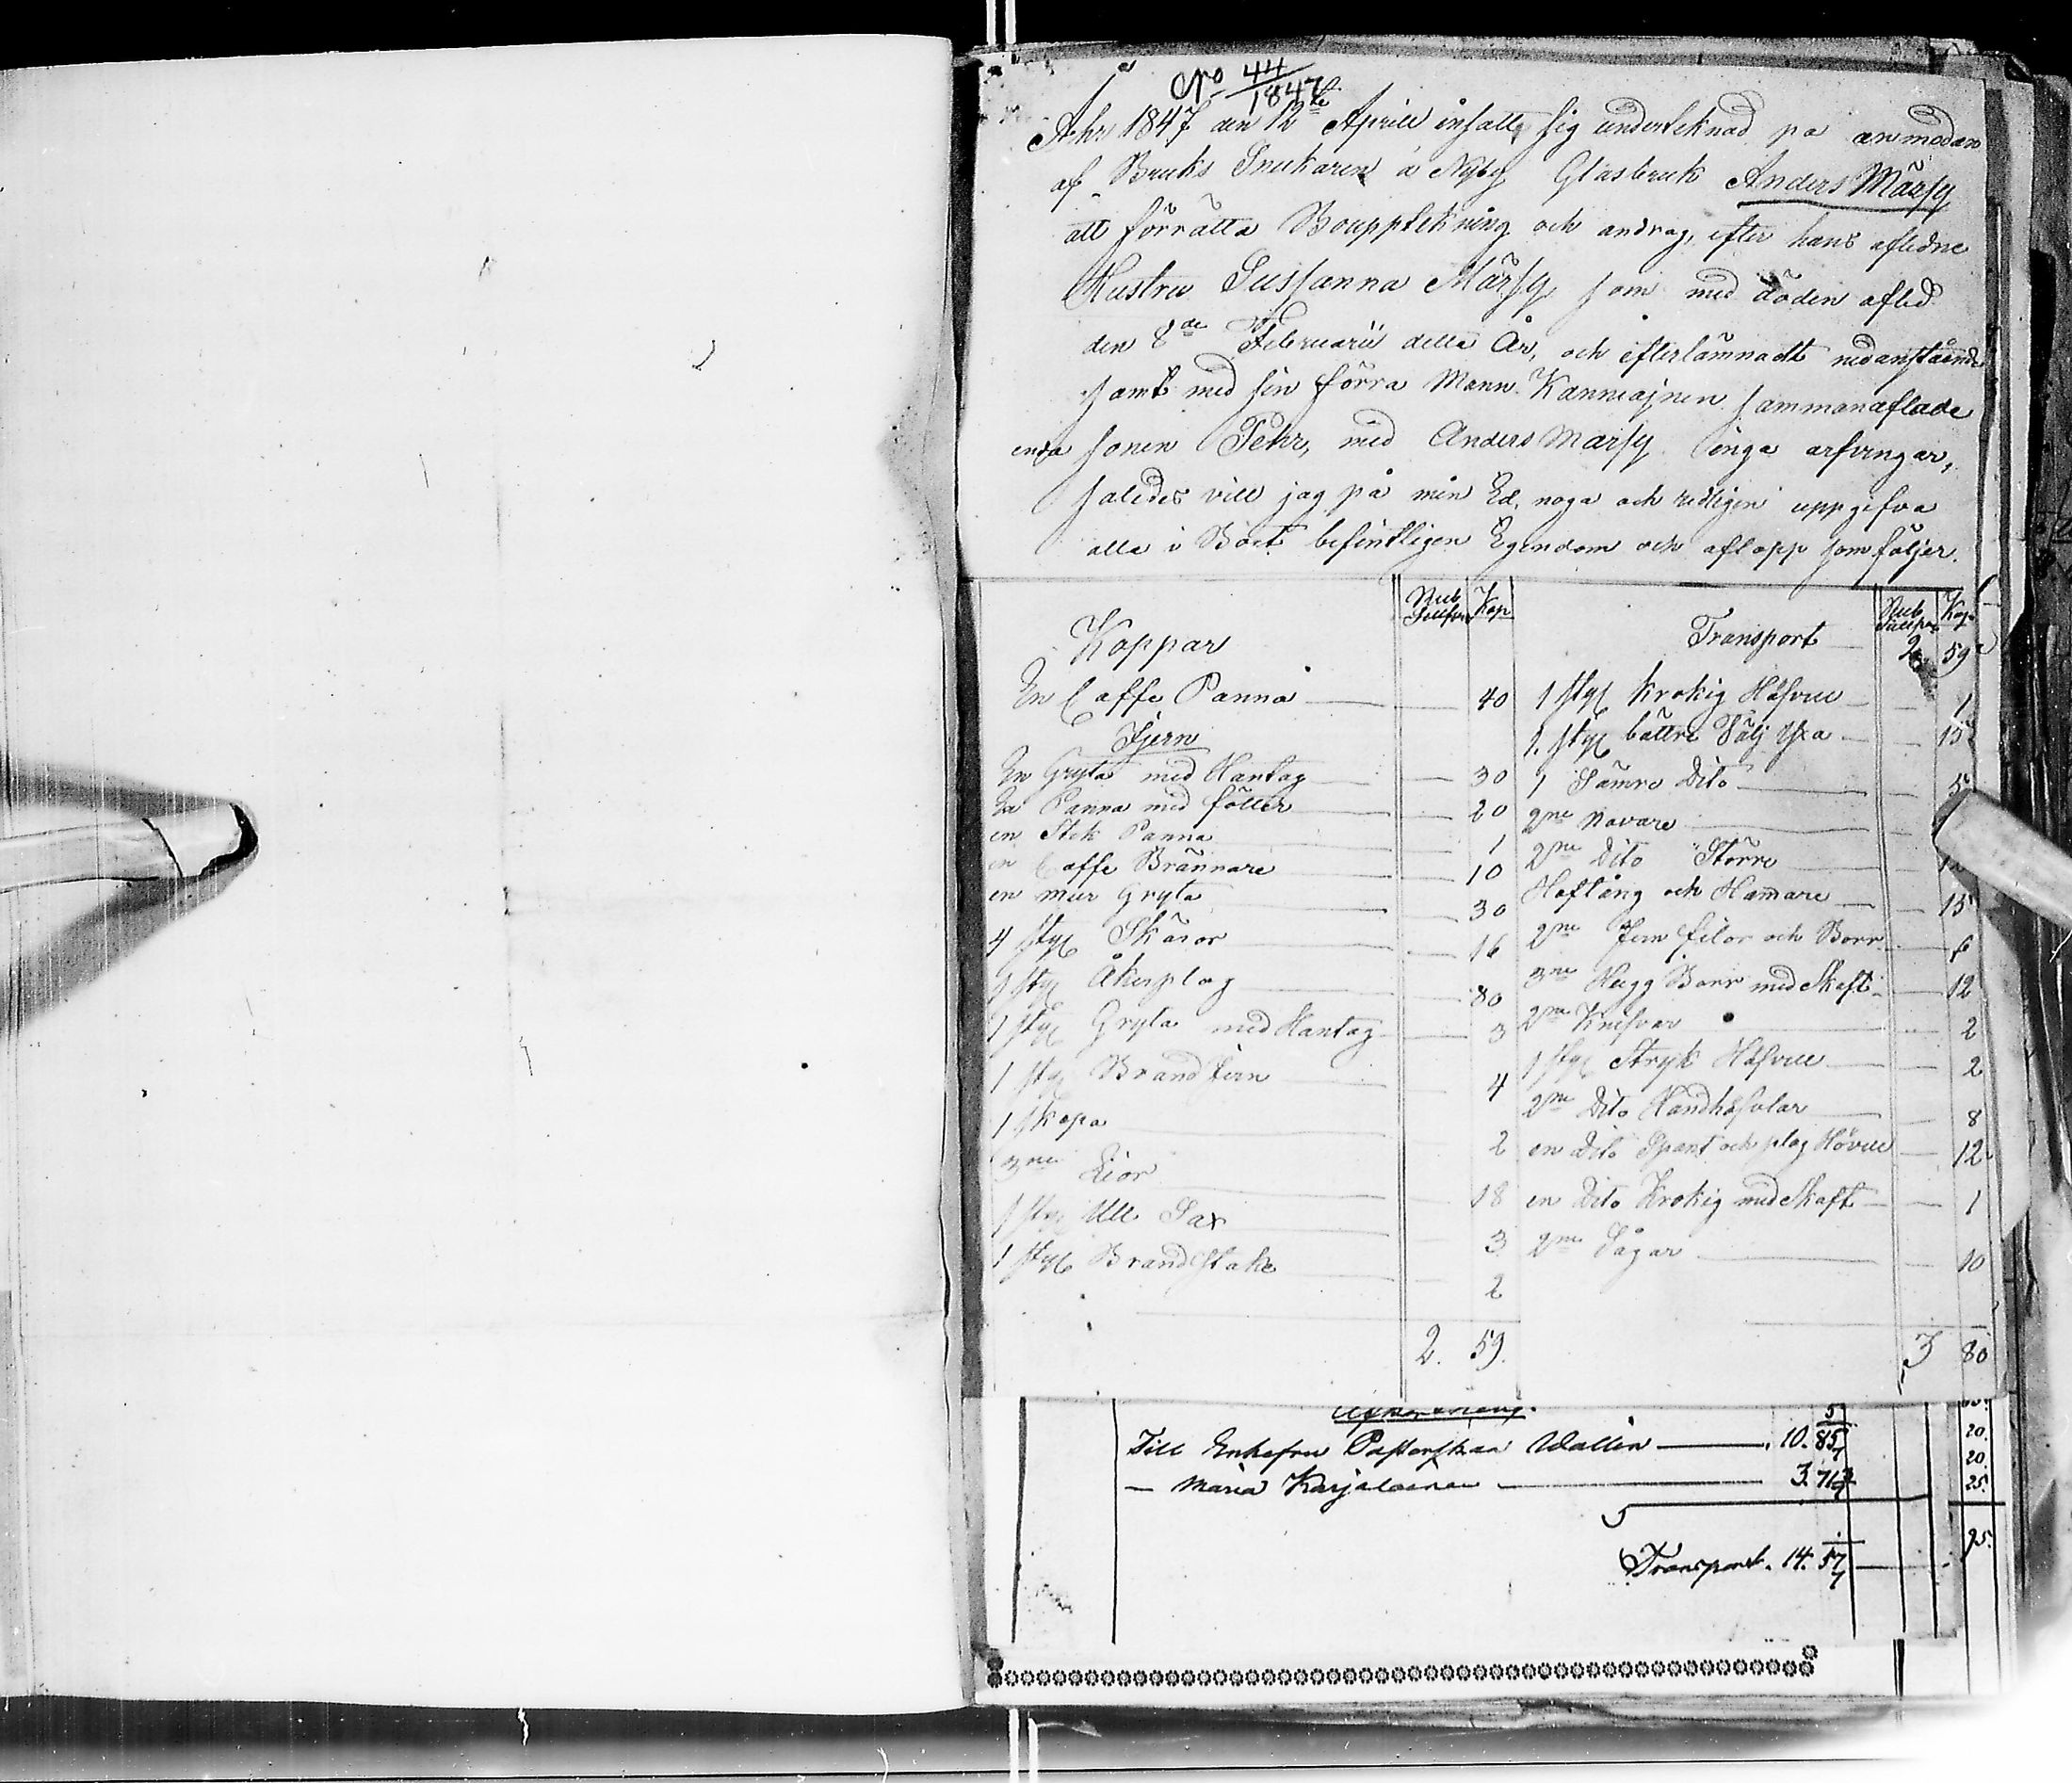 No 44/1847
Åhr 1847 den 12te Aprill insatte sig underteknad på anmodan
af Bruks Snickaren å Nyby Glasbruk Anders Märsy
att förrätta Bouppteckning och andrag, efter hans aflidne
Hustru Sussanna Märsy, som med döden afled
den 8de Februarii detta År, och efterlämnadt nedanstående
samt med sin förra Mann Kanniajnen sammanaflade
enda sonen Pehr, med Anders Marsy inga arfvingar,
således vill jag på min Ed, noga och redligen uppgifva
alla i Boet befintligen Egendom och aflopp som följer.
Rub Silfver Kop
Koppar
En Caffe Panna 40
Jjern
En Gryta med Hantag 30
En Panna med fötter 20
en Stek Panna 1
en Caffe Brännare 10
en mur Gryta 30
4 styc Skäror 16
1 styc Åkerplog 80
1 styc Gryta med Hantag 3
1 styc Brand jern 4
1 skopa 2
3ne Lior 18
1 styc Ull Sax 3
1 styc Brandstake 2
2. 59.
Rub Silfver Kop
Transport 2 59
1 styc krokig Häfvel 1
1. styc bättre Tälj Yxa 15
1 Sämre Dito 5
2ne Navare
2ne Dito Större
Hoftång och Hamare 15
2ne Jern filor och Borr 6
3ne Hugg Borr med Skaft 12
2ne Knifvar 2
1 styc Stryk Häfvel 2
2ne Dito Handhäfvlar 8
en Dito Spant och plog Hövell 12
en Dito Krokig med Skaft 1
2ne Sågar 10
3 80
Till Enkefru Pastorskan Wallin 10. 85 5/7
— Maria Karjalainen 3. 71 3/7
Transport. 14. 57 1/7
20.
20.
25.
95.